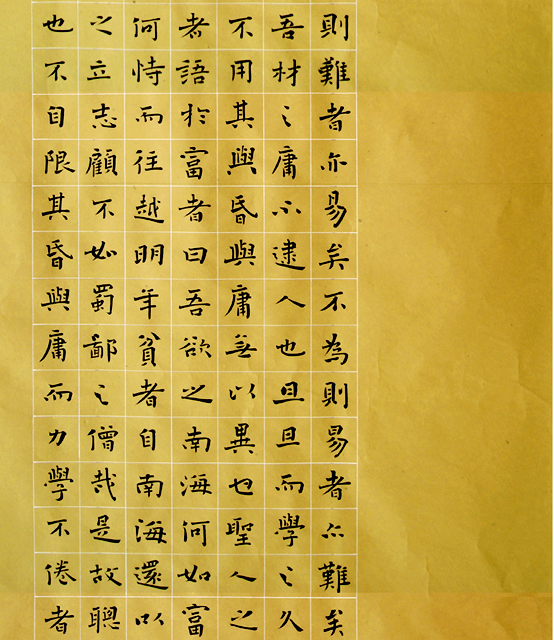 則難者亦易矣不為則易者亦難矣
吾材之庸不逮人也旦旦而學之久
不用其與昏與庸無以異也聖人之
者語於富者曰吾欲之南海何如富
何恃而往越明年貧者自南海還以
之立志顧不如蜀鄙之僧哉是故聰
也不自限其昏與庸而力學不倦者